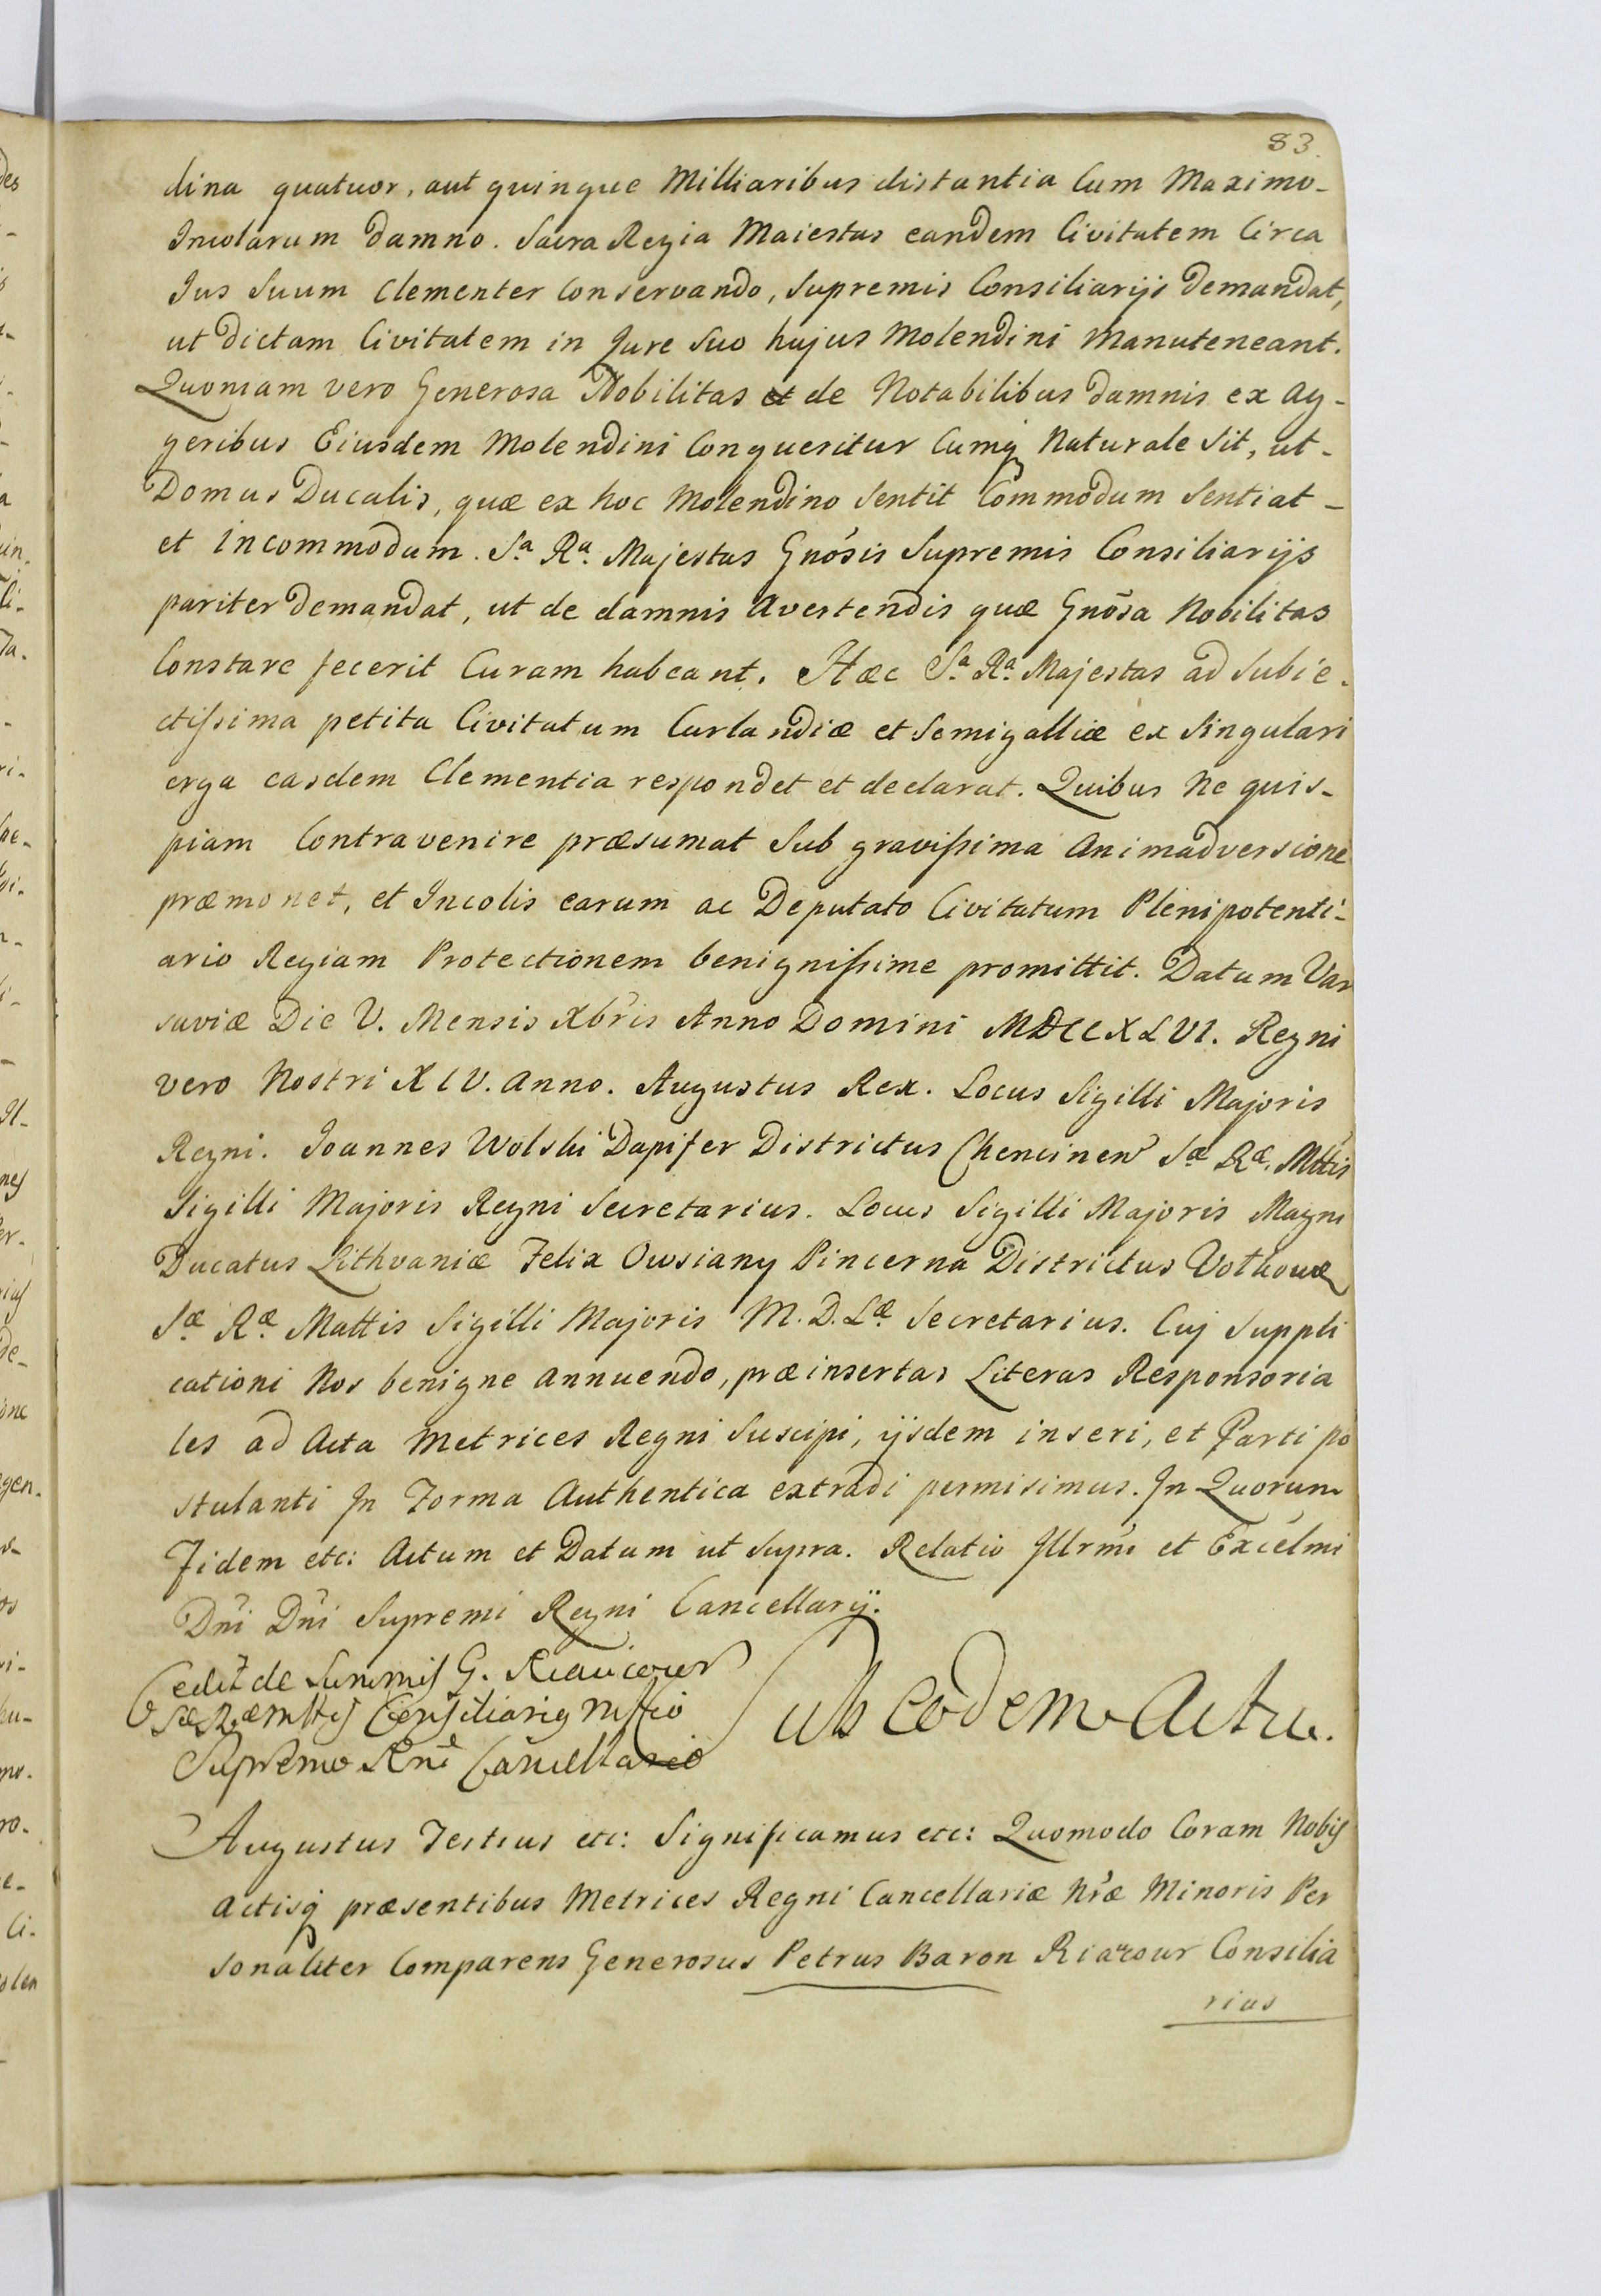 83.
dina quatuor, aut quinque Milliaribus distantia Cum Maximo-
Incolarum damno. Sacra Regia Maiestas eandem Civitatem Circa
Jus Suum Clementer Conservando, Supremis Consiliarijs demandat,
ut dictam Civitatem in Jure Suo hujus Molendini Manuteneant.
Quoniam vero Generosa Nobilitas et de Notabilibus damnis ex Ag-
geribus Eiusdem Molendini Conqueritur Cumq Naturale Sit, ut-
Domus Ducalis, quæ ex hoc Molendino Sentit Commodum Sentiat-
et incommodum. S.a R.a Majestas Gnósis Supremis Consiliarijs
pariter demandat, ut de damnis Avertendis quæ Gnósa Nobilitas
Constare fecerit Curam habeant. Hæc S.a R.a Majestas ad Subie-
ctissima petita Civitatum Curlandiæ et Semigalliæ ex Singulari
erga easdem Clementia respondet et declarat. Quibus Ne quis-
piam Contravenire præsumat Sub gravissima Animadversione
præmonet, et Incolis earum ac Deputato Civitatum Plenipotenti-
ario Regiam Protectionem benignissime promittit. Datum Var
saviæ Die V. Mensis Xbris Anno Domini MDCCXLVI. Regni
vero Nostri XIV. Anno. Augustus Rex. Locus Sigilli Majoris
Regni. Joannes Wolski Dapifer Districtus Chencinen S.æ R.æ Mttis
Sigilli Majoris Regni Secretarius. Locus Sigilli Majoris Magni
Ducatus Lithvaniæ Felix Owsiany Pincerna Districtus
S.æ R.æ Mattis Sigilli Majoris M.D.L.æ Secretarius. Cuj Suppli
cationi Nos benigne annuendo, præinsertas Literas Responsoria
les ad Acta Metrices Regni Suscipi, ijsdem inseri, et Parti po
stulanti In Forma Authentica extradi permisimus. In Quorum
Fidem etc: Actum et Datum ut Supra. Relatio Illrmi et Excelmi
Dni Dni Supremi Regni Cancellarij.
de Summis G. Riaucour
Consiliarig
Supremo Cancellario
Sub Eodem Actu.
Augustus Tertius etc: Significamus etc: Quomodo Coram Nobis
Actisq præsentibus Metrices Regni Cancellariæ Nræ Minoris Per
sonaliter Comparens Generosus Petrus Baron Riaucour Consilia
rius